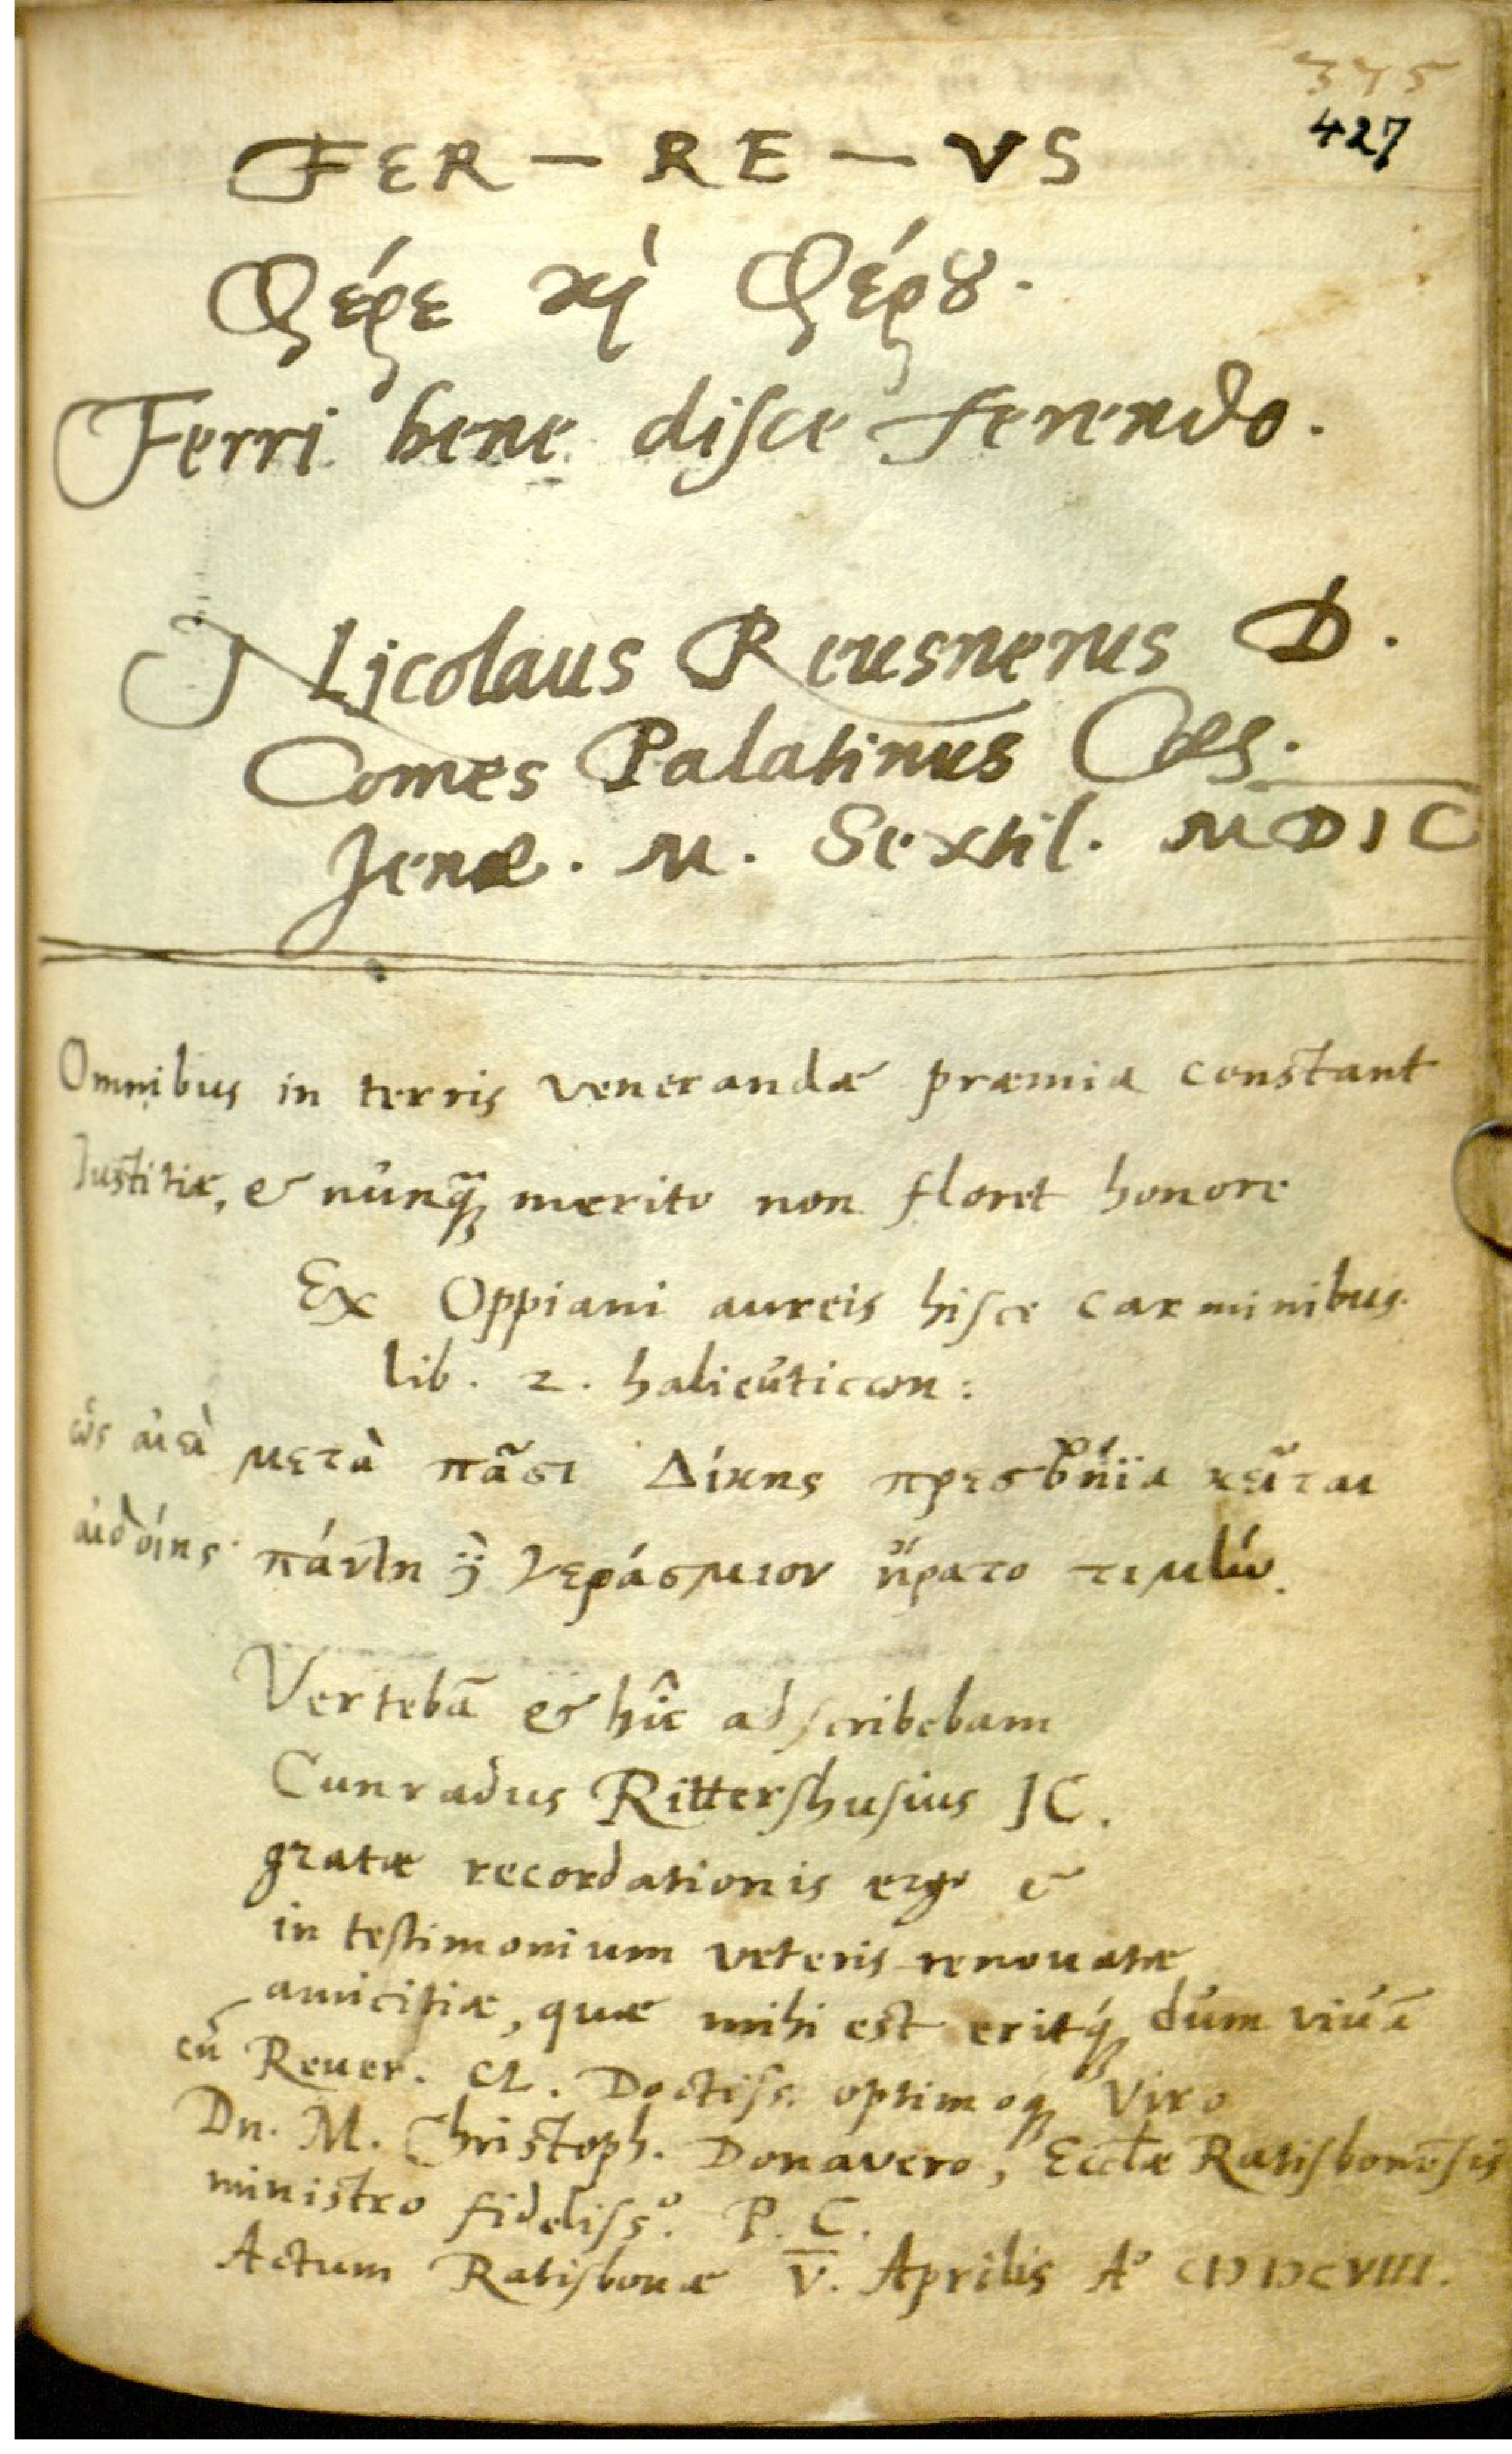 375
427
FER — RE — VS
Φέρε ϗ̀ Φέρȣ.
Ferri bene disce ferendo.
Nicolaus Reusnerus D.
Comes Palatinus Cæs.
Jenæ. M. Sextil. MDIC
Omnibus in terris venerandæ præmia constant
Iustitiæ, & nunq̃ꝫ merito non floret honore
Ex Oppiani aureis hisce carminibus.
lib. 2. halieuticωn:
ὣς αἰεὶ μετὰ πᾶσι Δίκης πρεσβήϊα κεῖται
αἰδοίης· πάντη ἢ γεράσμιον ἤρατο τιμήν.
Vertebā & hîc adscribebam
Cunradus Rittershusius JC.
gratæ recordationis ergo &
in testimonium veteris renouatæ
amicitiæ, quæ mihi est eritq́ꝫ dum viuā
cū Reuer. Cl. Doctiss. optimoqꝫ Viro
Dn. M. Christoph. Donavero, Eccłæ Ratisbonēsis
ministro fideliss.º P. C.
Actum Ratisbonæ V. Aprilis Aº CIↃ IↃCVIII.